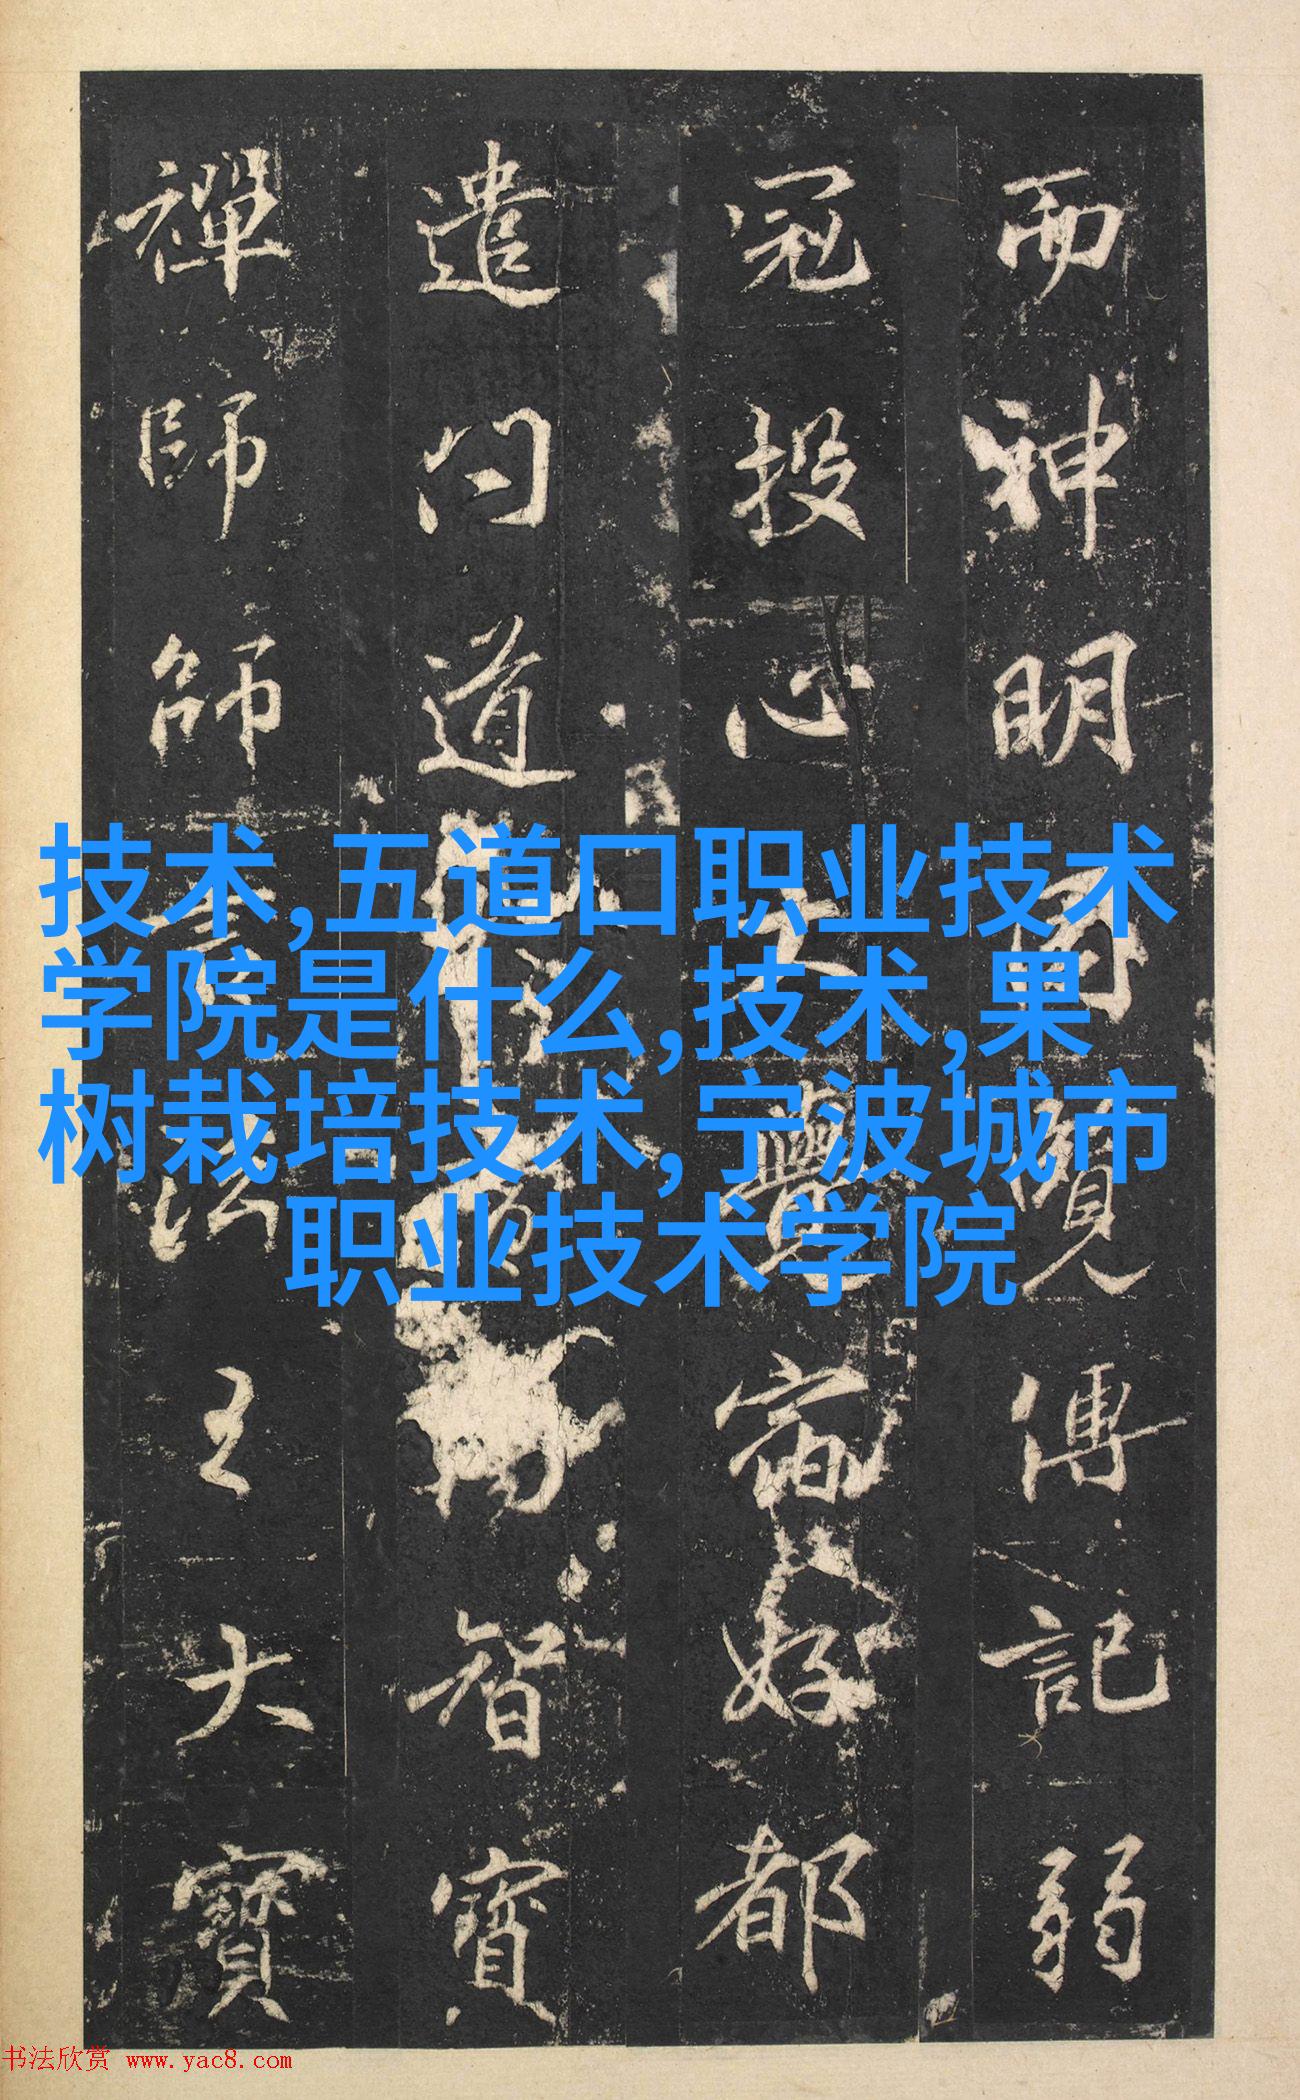 而神明周覽傳記弱
冠投心大覺宿好都
遣問道智寶
禪師師法王大寶
技术,五道口职业技术
学院是什么,技术,果
树栽培技术,宁波城市
职业技术学院
书法欣赏 www.yac8.com